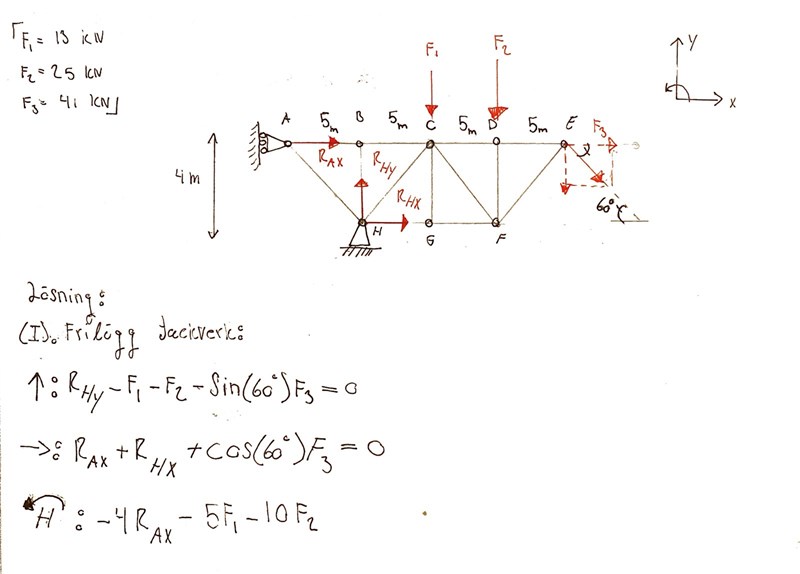 F₁ = 13 kN
F₂ = 25 kN
F₃ = 41 kN
F₁ F₂
y
x
A 5m B 5m C 5m D 5m E F₃
R_AX R_Hy
4 m
R_HX
60°
H G F
Lösning:
(I). Frilägg fackverk:
↑: R_Hy - F₁ - F₂ - Sin(60°)F₃ = 0
→: R_AX + R_HX + cos(60°)F₃ = 0
H: -4R_AX - 5F₁ - 10F₂